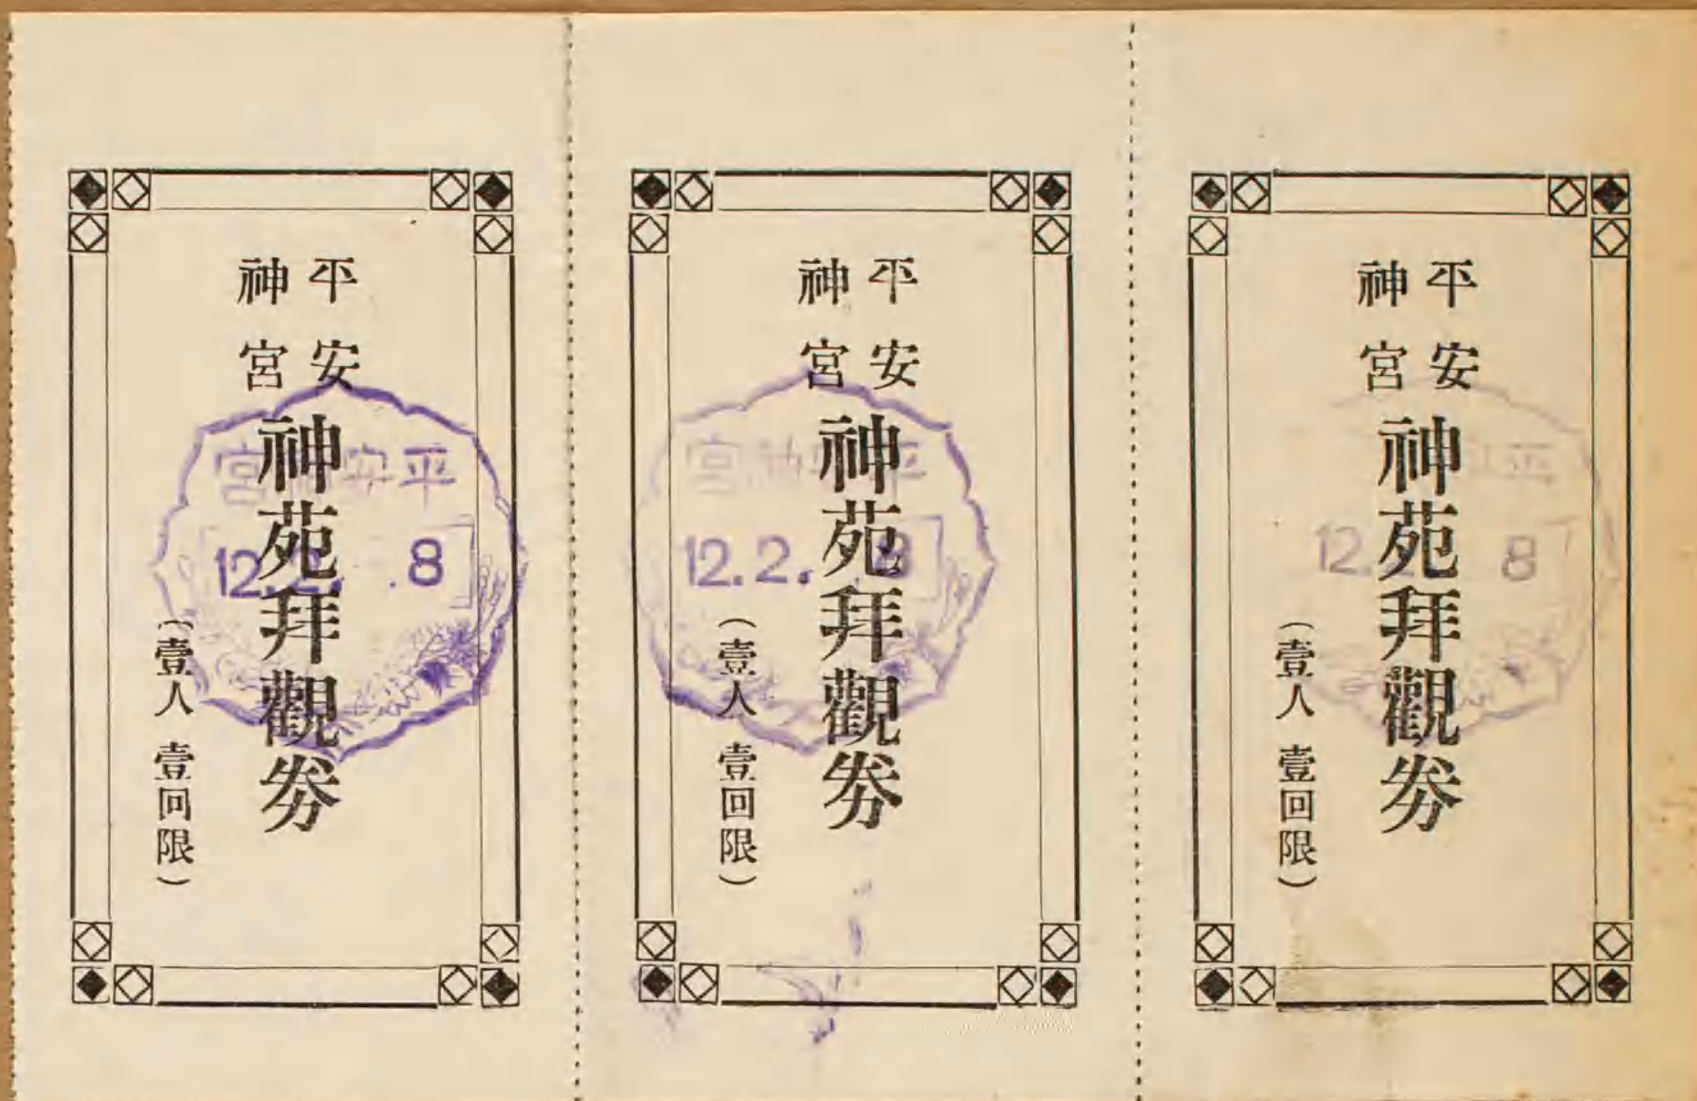 平安
神宮
神苑拜觀劵
(壹人 壹回限)
平安神宮
12.2. .8
平安
神宮
神苑拜觀劵
(壹人 壹回限)
平安神宮
12.2. .8
平安
神宮
神苑拜觀劵
(壹人 壹回限)
平
12. 8